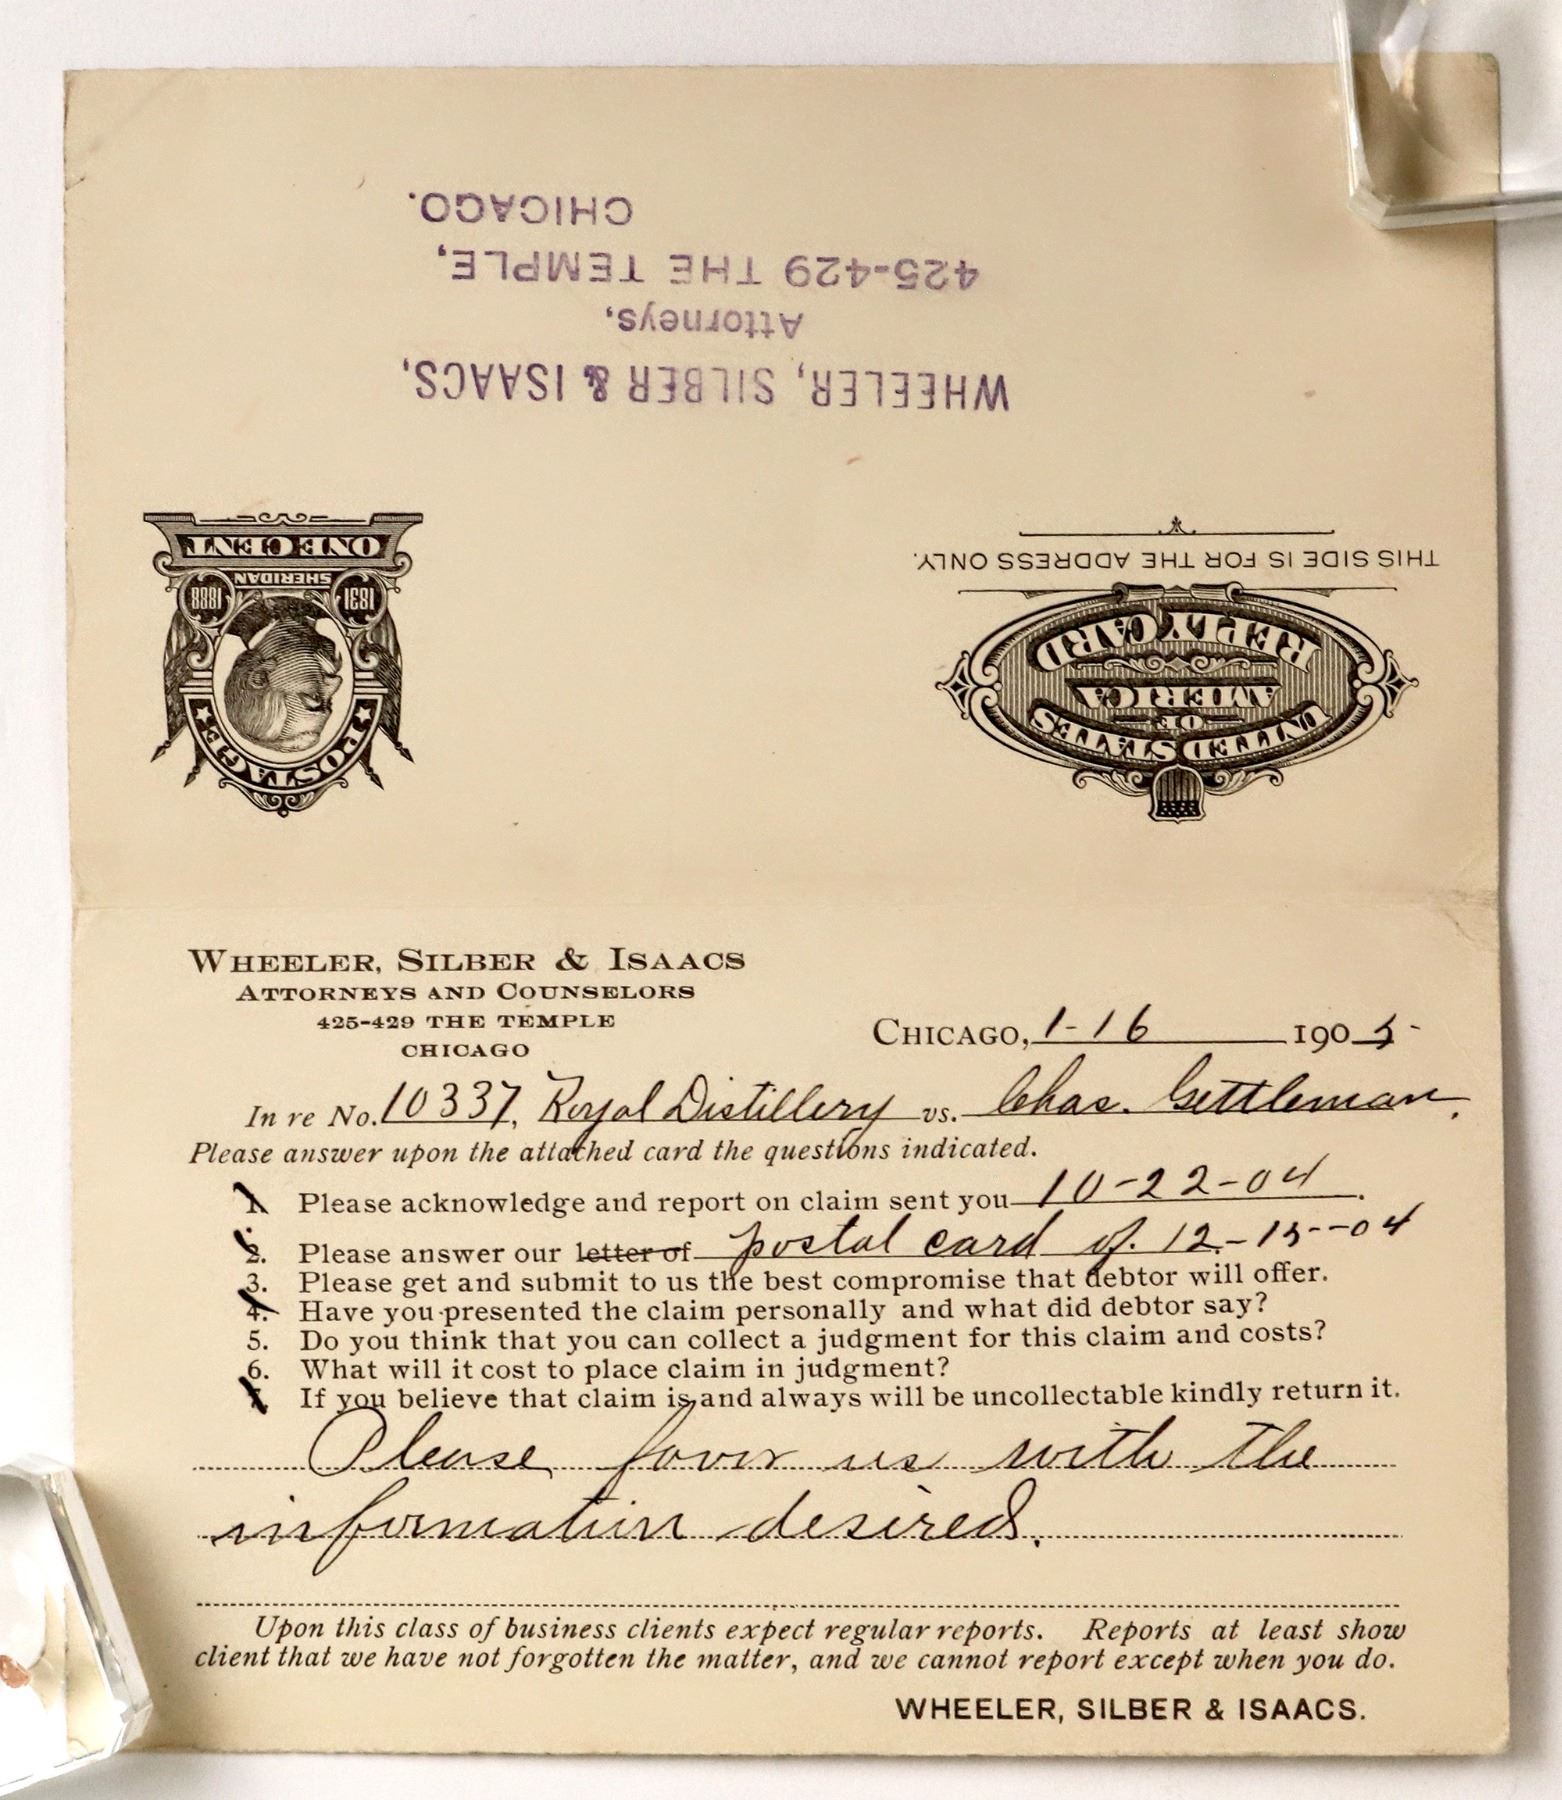 CHICAGO.
425-429 THE TEMPLE,
Attorneys,
WHEELER, SILBER & ISAACS,
ONE CENT
SHERIDAN
1831 1888
POSTAGE
THIS SIDE IS FOR THE ADDRESS ONLY.
REPLY CARD
AMERICA
OF
UNITED STATES
WHEELER, SILBER & ISAACS
ATTORNEYS AND COUNSELORS
425-429 THE TEMPLE
CHICAGO
CHICAGO, 1-16 1905
In re No. 10337, Royal Distillery vs. Chas. Gettleman.
Please answer upon the attached card the questions indicated.
1. Please acknowledge and report on claim sent you 10-22-04.
2. Please answer our letter of postal card of 12-15-04
3. Please get and submit to us the best compromise that debtor will offer.
4. Have you presented the claim personally and what did debtor say?
5. Do you think that you can collect a judgment for this claim and costs?
6. What will it cost to place claim in judgment?
7. If you believe that claim is and always will be uncollectable kindly return it.
Please favor us with the
information desired.
Upon this class of business clients expect regular reports. Reports at least show
client that we have not forgotten the matter, and we cannot report except when you do.
WHEELER, SILBER & ISAACS.